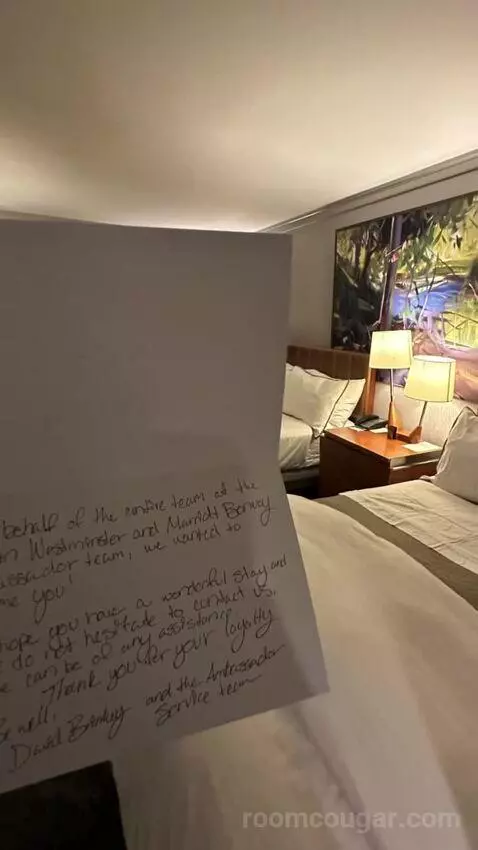 behalf of the entire team at the
Westminster and Marriott Bonvoy
team, we wanted to
you!
hope you have a wonderful stay and
do not hesitate to contact us,
can be of any assistance.
Thank you for your loyalty
well,
David and the Ambassador
Service team
roomcougar.com